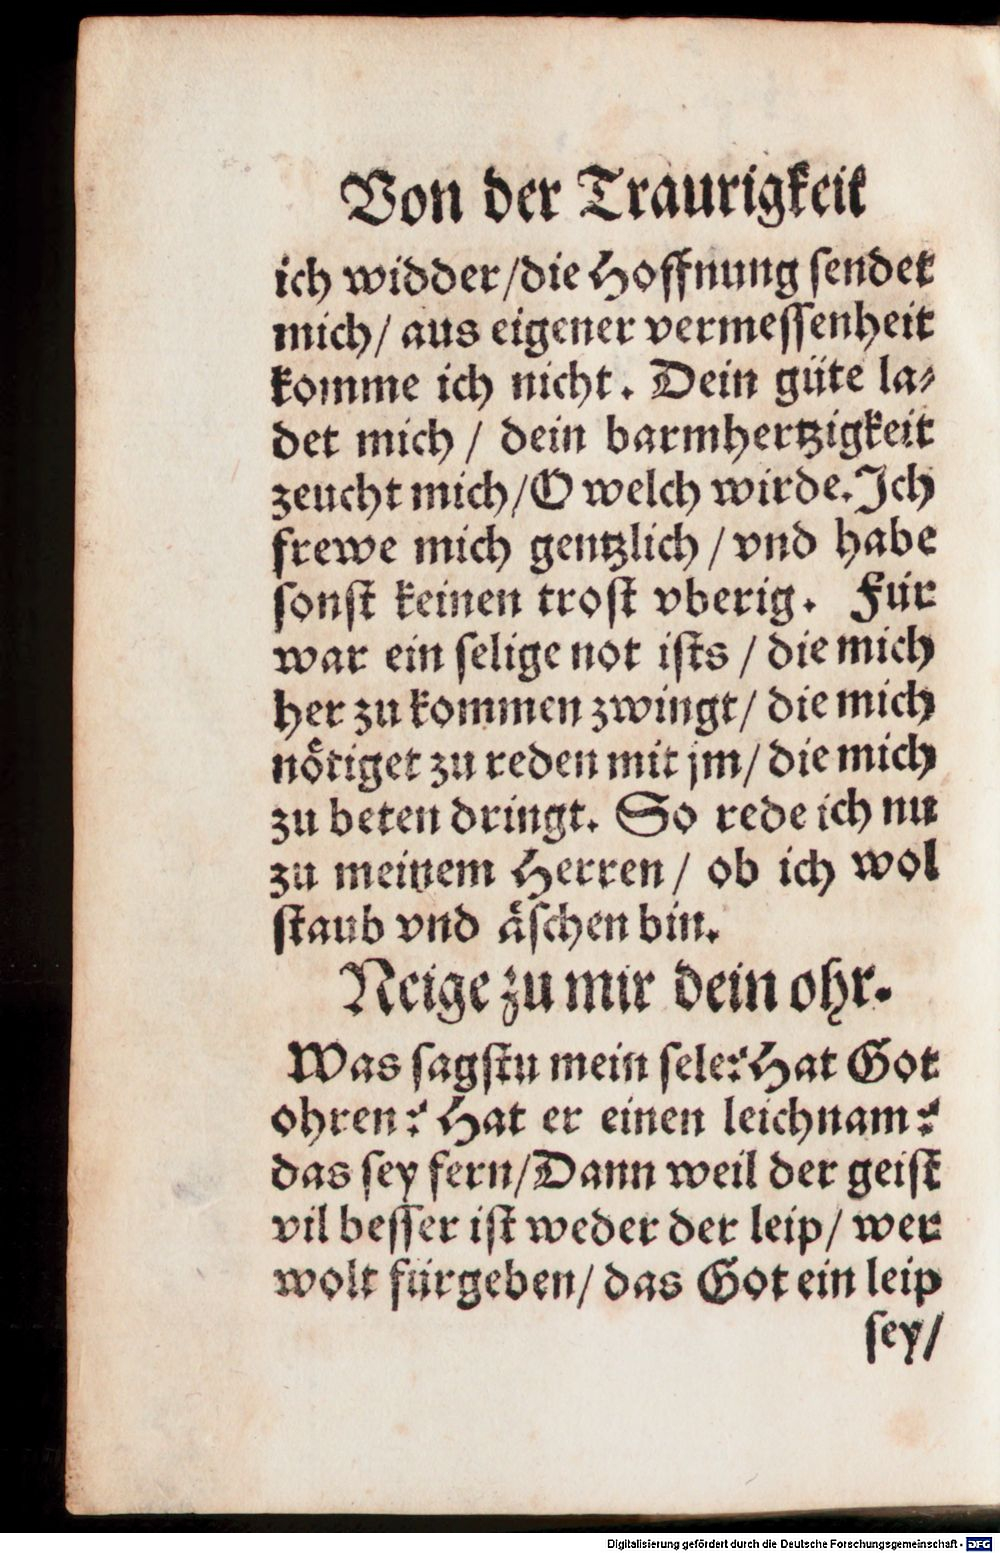 Von der Traurigkeit
ich widder/die Hoffnung sendet
mich/ aus eigener vermessenheit
komme ich nicht. Dein güte la⸗
det mich / dein barmhertzigkeit
zeucht mich/O welch wirde. Ich
frewe mich gentzlich / vnd habe
sonst keinen trost vberig. Für
war ein selige not ists / die mich
her zu kommen zwingt/ die mich
nötiget zu reden mit jm/ die mich
zu beten dringt. So rede ich nu
zu meinem Herren/ ob ich wol
staub vnd äschen bin.
Neige zu mir dein ohr.
Was sagstu mein sele? Hat Got
ohren? Hat er einen leichnam?
das sey fern/Dann weil der geist
vil besser ist weder der leip/ wer
wolt fürgeben/ das Got ein leip
sey/
Digitalisierung gefördert durch die Deutsche Forschungsgemeinschaft - DFG